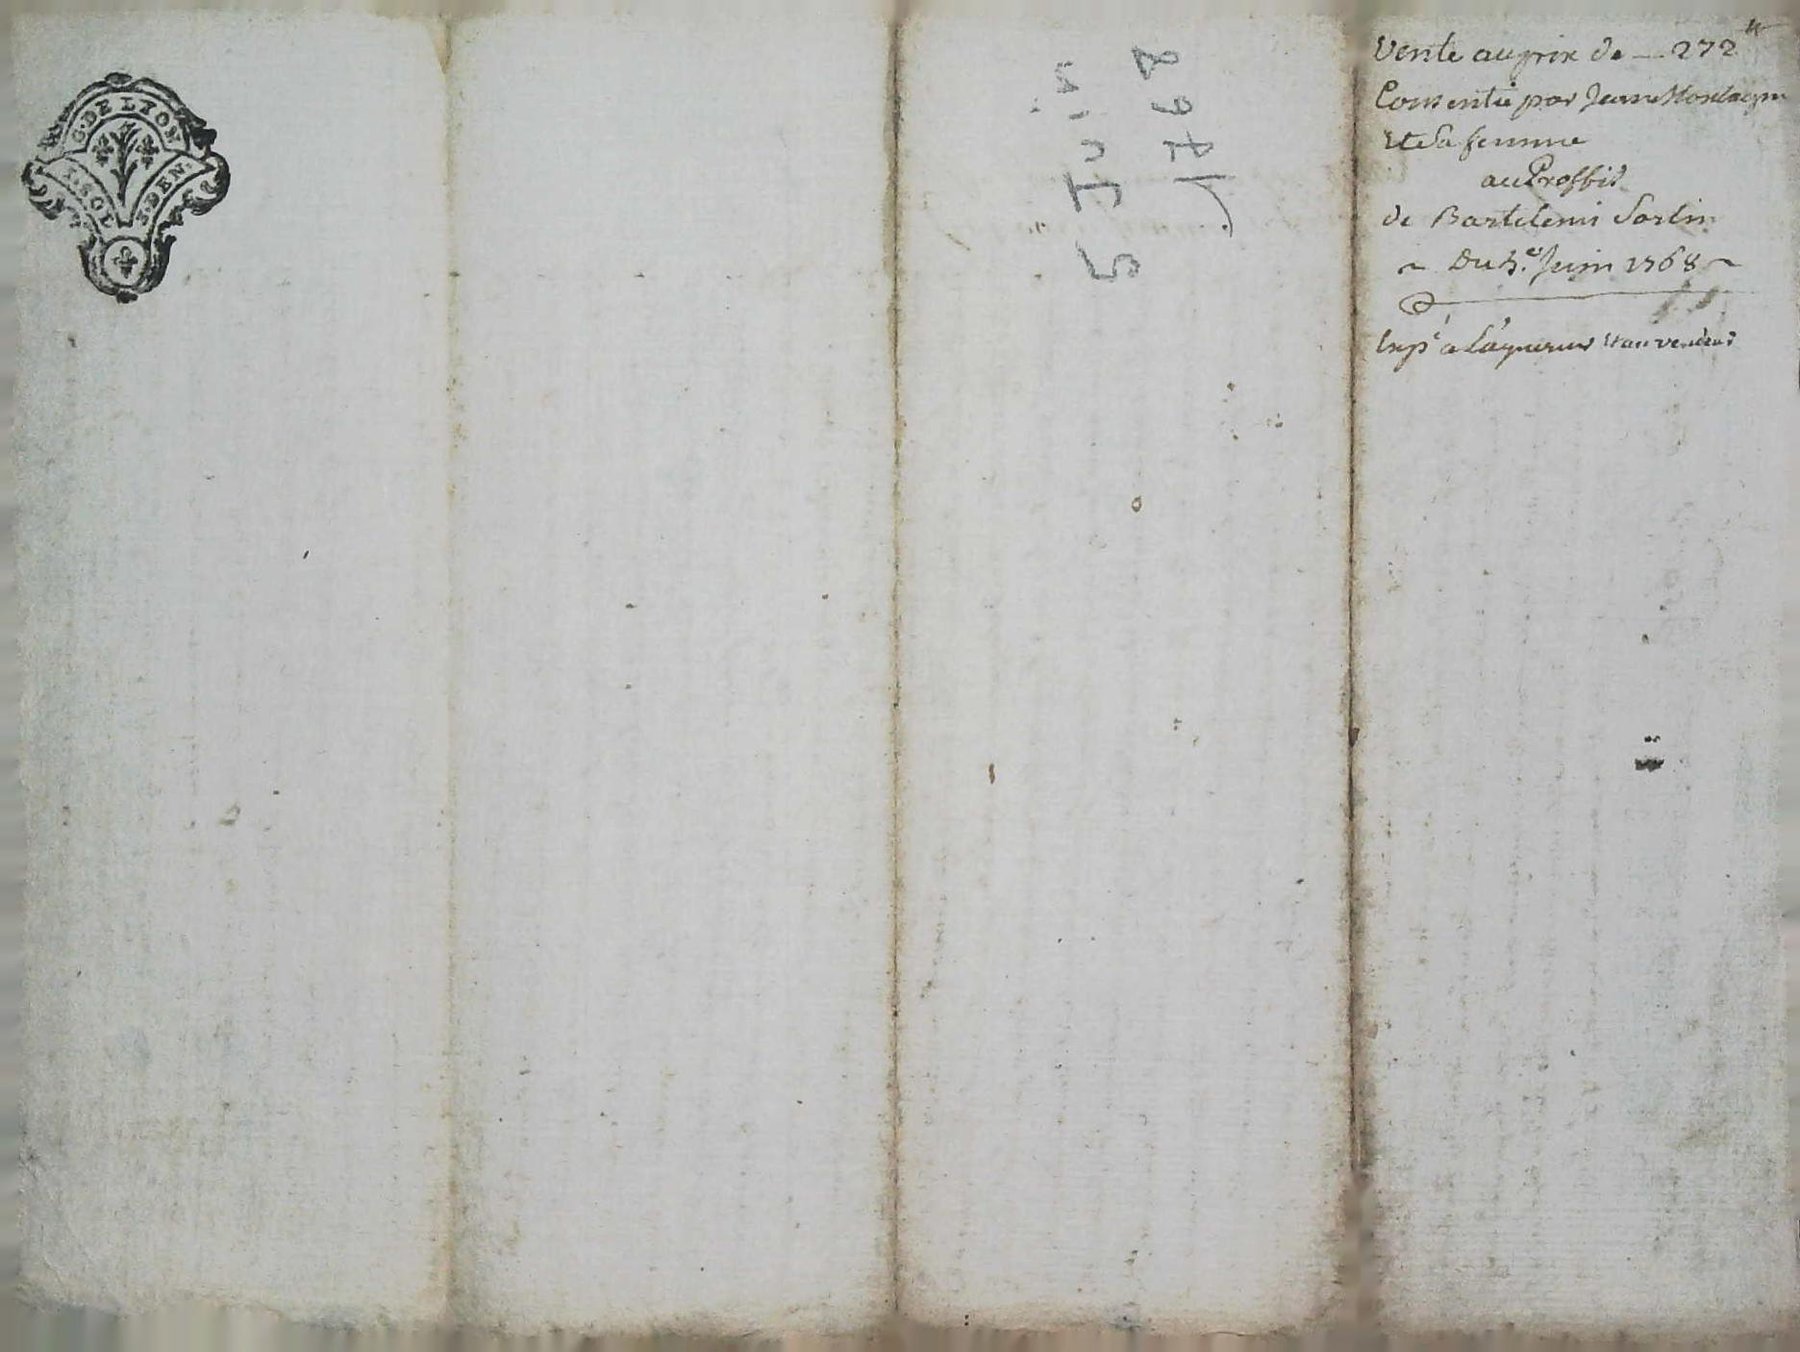 G. DE LYON
1. SOL
8. DEN.
5 Juin
1768
Vente au prix de — 272 ₶
Consentie par Jean Montagne
Et Sa femme
au Proffit
de Bartelemi Sorlin
~ Du 5.e Juin 1768 ~
Exp.é a L'aquereur Et au vendeur